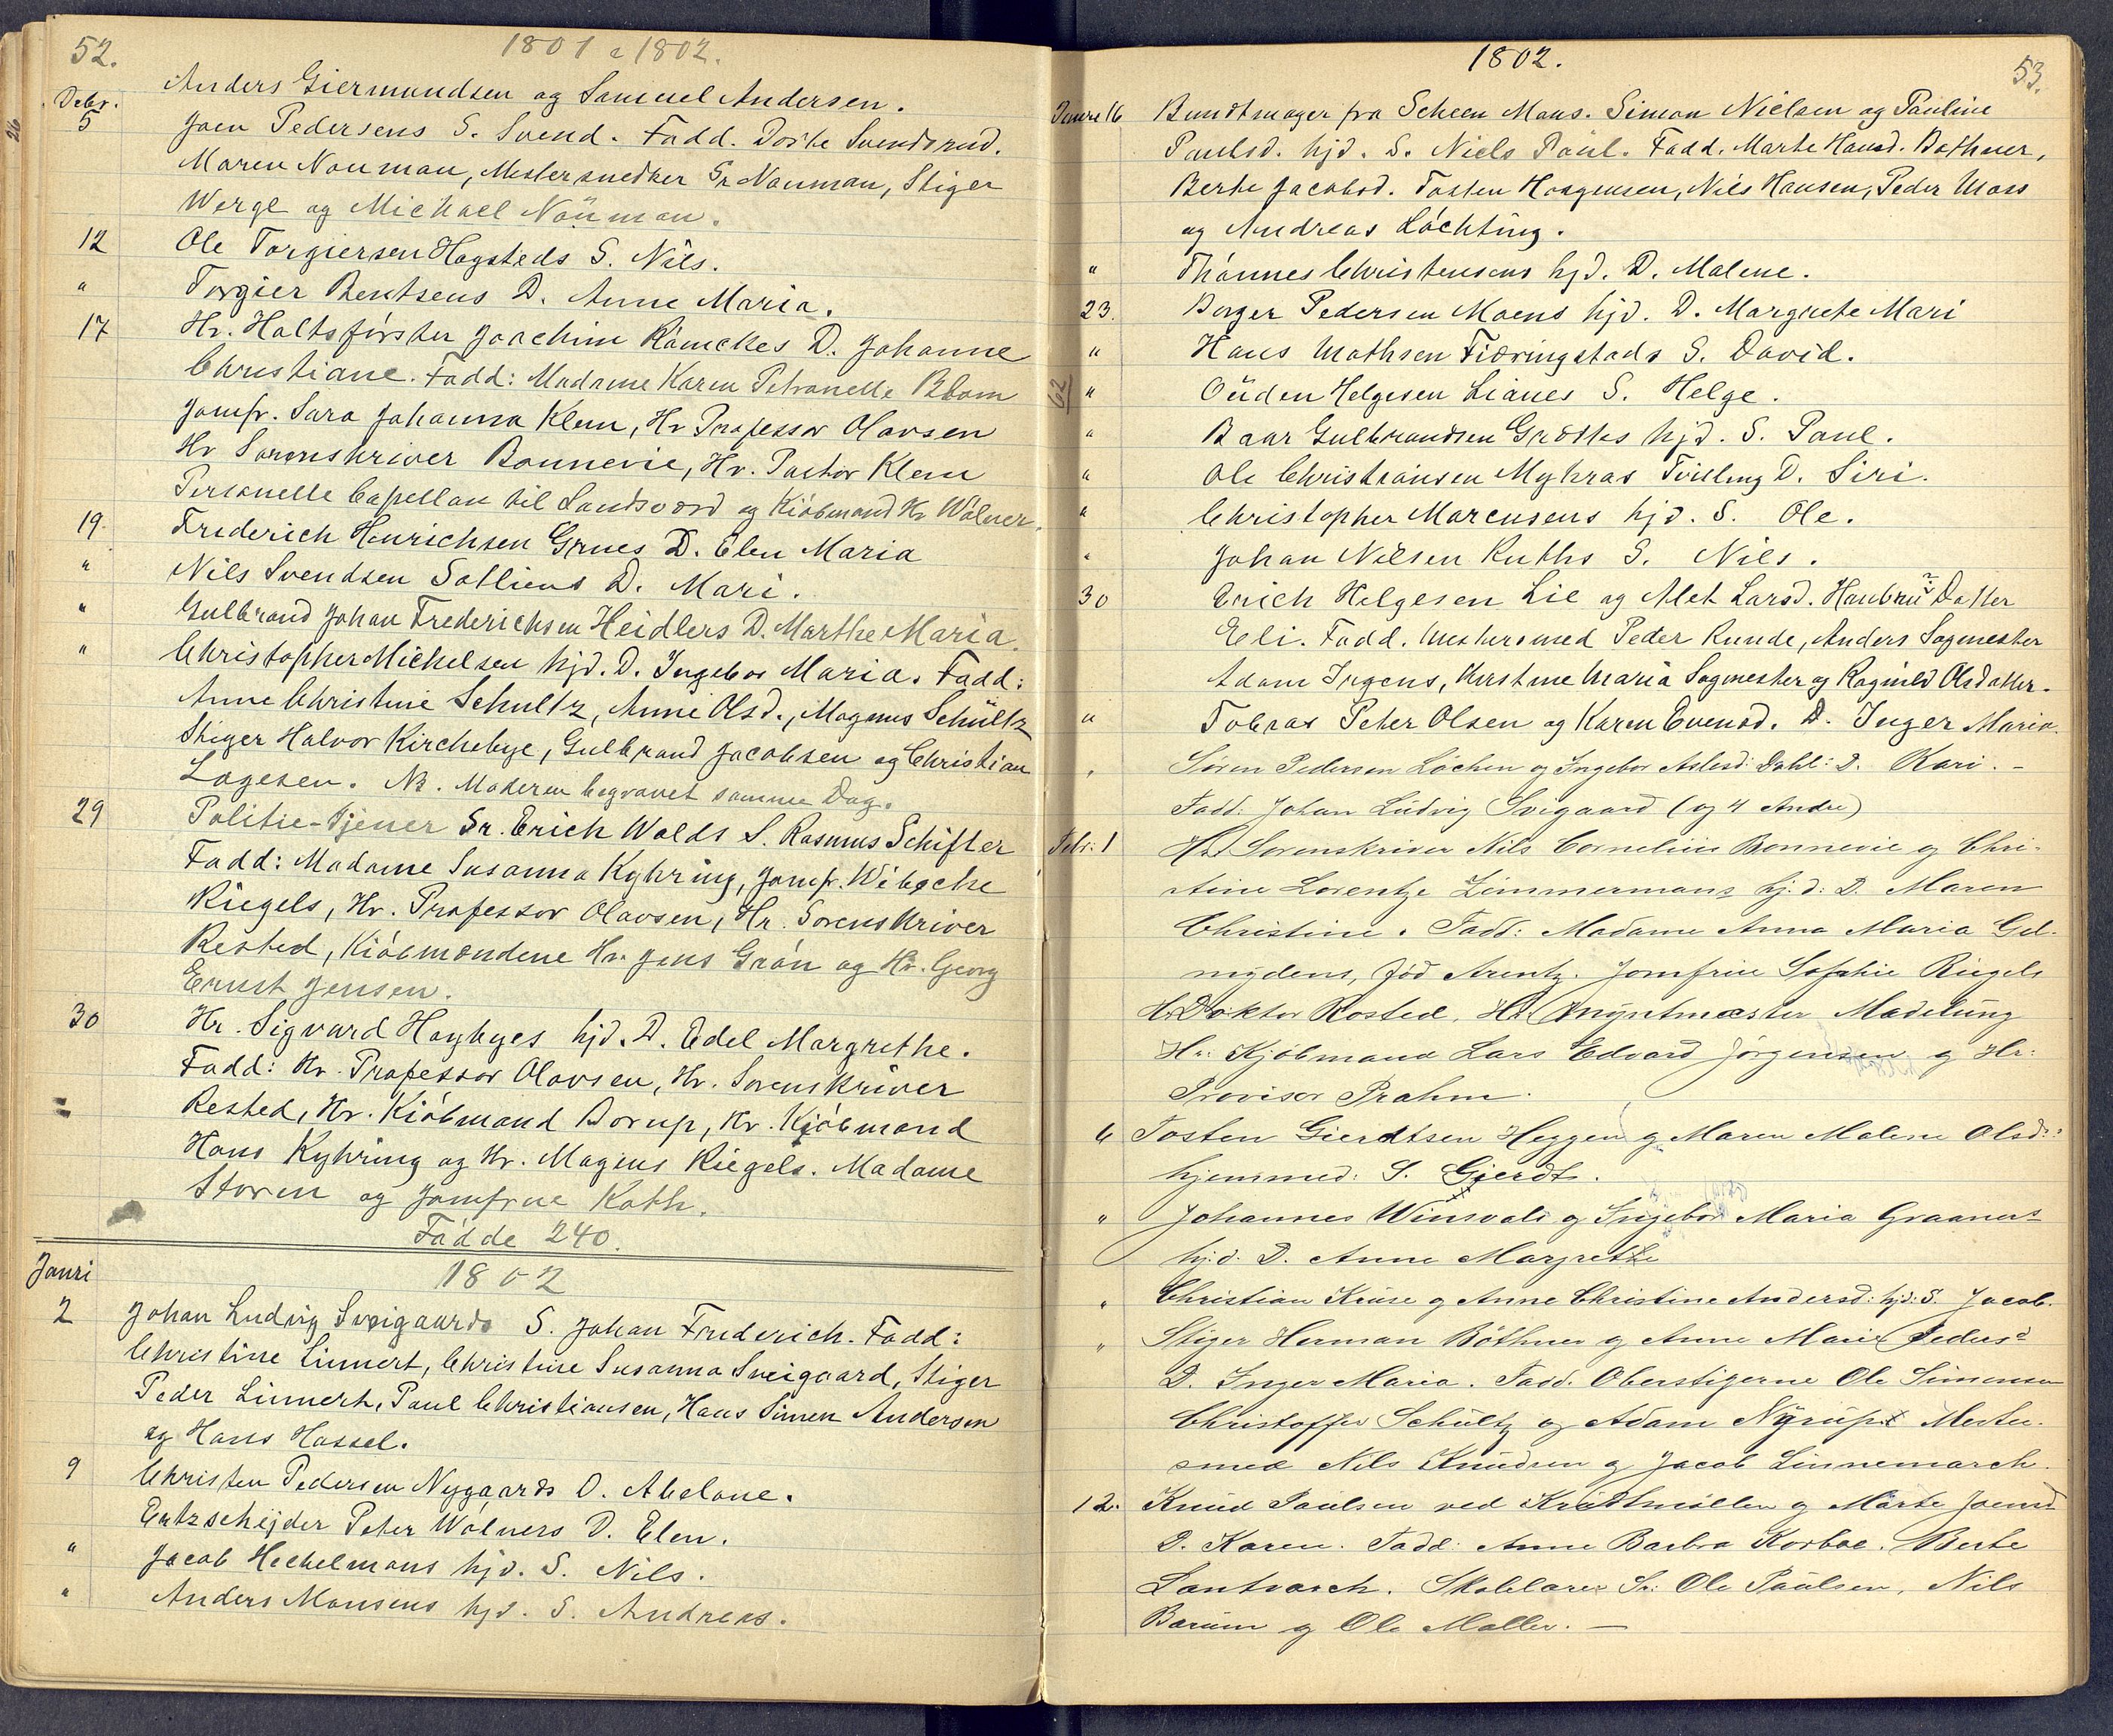 52.
1801 & 1802.
Anders Giermundsen og Samuel Andersen.
Debr.
5 Joen Pedersens S. Svend. Fadd. Dorte Svendsrud.
Maren Nauman, Mestersnedker Sr Nauman, Stiger
Wergl og Michael Naüman.
12 Ole Torgiersen Hagsteds S. Nils.
" Torgier Bentsens D. Anne Maria.
17 Hr. Holtsförster Joachim Rämckes D. Johanne
Christiane. Fadd: Madame Karen Petronelle Blom
Jomfr. Sara Johanna Klem, Hr Professor Olavsen
Hr Sorenskriver Bonnevie, Hr. Pastor Klem
Personelle Capellan til Sandsværd og Kiöbmand Hr Wölner.
19. Frederich Henrichsen Grues D. Elen Maria
" Nils Svendsen Satliens D. Mari.
" Gulbrand Johan Frederichsen Heidlers D. Marthe Maria.
" Christopher Michelsen hjd. D. Ingebor Maria. Fadd:
Anne Christine Schultz, Anne Olsd., Magnus Schültz
Stiger Halvor Kirchebye, Gulbrand Jacobsen og Christian
Lagesen. NB. Moderen begravet samme Dag.
29 Politie-Tjener Sr. Erich Walds S. Rasmus Schifter
Fadd: Madame Susanna Kyhring, Jomfr. Wibeche
Riegels, Hr. Professor Olavsen, Hr. Sorenskriver
Rested, Kiöbmændene Hr. Jens Grön og Hr. Georg
Ernst Jensen.
30 Hr. Sigvard Hoybyes hjd. D. Edel Margrethe.
Fadd: Hr. Professor Olavsen, Hr. Sorenskriver
Rested, Hr. Kiöbmand Borup, Hr. Kiöbmand
Hans Kyhring og Hr. Magnus Riegels. Madame
Storen og Jomfrue Kath.
Födde 240.
Janri
1802
2 Johan Ludvig Sveigaards S. Johan Frederich. Fadd:
Christine Linnert, Christine Susanna Sveigaard, Stiger
Peder Linnert, Paul Christiansen, Hans Simen Andersen
og Hans Hassel.
9 Christen Pedersen Nygaards D. Abelone.
Ertzscheider Peter Wölners D. Elen.
" Jacob Heckelmans hjd. S. Nils.
" Anders Monsens hjd. S. Andreas.
1802.
53.
Januar 16 Bundtmager fra Scheen Mons. Simon Nielsen og Pauline
Paulsd. hjd. S. Niels Paul. Fadd. Marte Hansd. Bothner,
Berte Jacobsd. Tosten Haagensen, Nils Hansen, Peder Moss
og Andreas Löchting.
" Thönnes Christensens hjd. D. Malene.
23. Borger Pedersen Moens hjd. D. Margrete Mari
" Hans Mathsen Fiæringstads S. David.
62 " Oüden Helgesen Lianes S. Helge.
" Baar Gulbrandsen Grættes hjd. S. Paul.
" Ole Christiansen Mykras Tvilling D. Siri.
" Christopher Marcusens hjd. S. Ole.
" Johan Nilsen Ruths S. Nils.
30 Erich Helgesen Lie og Alet Larsd. Haubrü? Datter
Eli. Fadd. Mestersmed Peder Runde, Anders Sagmester
Adam Irgens, Kirstine Maria Sagmester og Ragnild Olsdatter.
" Tobias Peter Olsen og Karen Evensd. D. Inger Maria.
" Sören Pedersen Löchen og Ingebor Aslesd: Dahl: D. Kari. -
Fadd: Johan Ludvig Svigaard (og 4 Andre)
Febr: 1 Hr Sorenskriver Nils Cornelius Bonnevie og Chri-
stine Lorentze Zimmermans hj:d: D. Maren
Christine. Fadd: Madame Anna Maria Gel-
mydens, fød Arentz. Jomfrue Sophie Riegels
Hr Doktor Rosted, Hr Myntmæster Madelüng
Hr: Kjöbmand Lars Edvard Jörgensen og Hr:
Provisor Prahm.
6 Tosten Gierdtsen Heggen og Maren Malene Olsd::
hjemmed: S. Gierdt.
" Johannes Winsvals og Ingebor Maria Graaners
hj:d. D. Anne Margrethe
" Christian Krüse og Anne Christine Andersd: hjd: S. Jacob.
" Stiger Herman Böthner og Anne Marie Pedersd
D. Inger Maria. Fadd. Oberstigerne Ole Simensen
Christoffer Schültz og Adam Nÿrup. Mester-
smed Nils Knüdsen og Jacob Linnemarch.
12. Knud Paülsen ved Krüdtmöllen og Marte Joensd
D. Karen. Fadd: Anne Barbra Korboe. Berte
Lantvarch. Skolelærer Sr: Ole Paülsen, Nils
Bærüm og Ole Møller. —